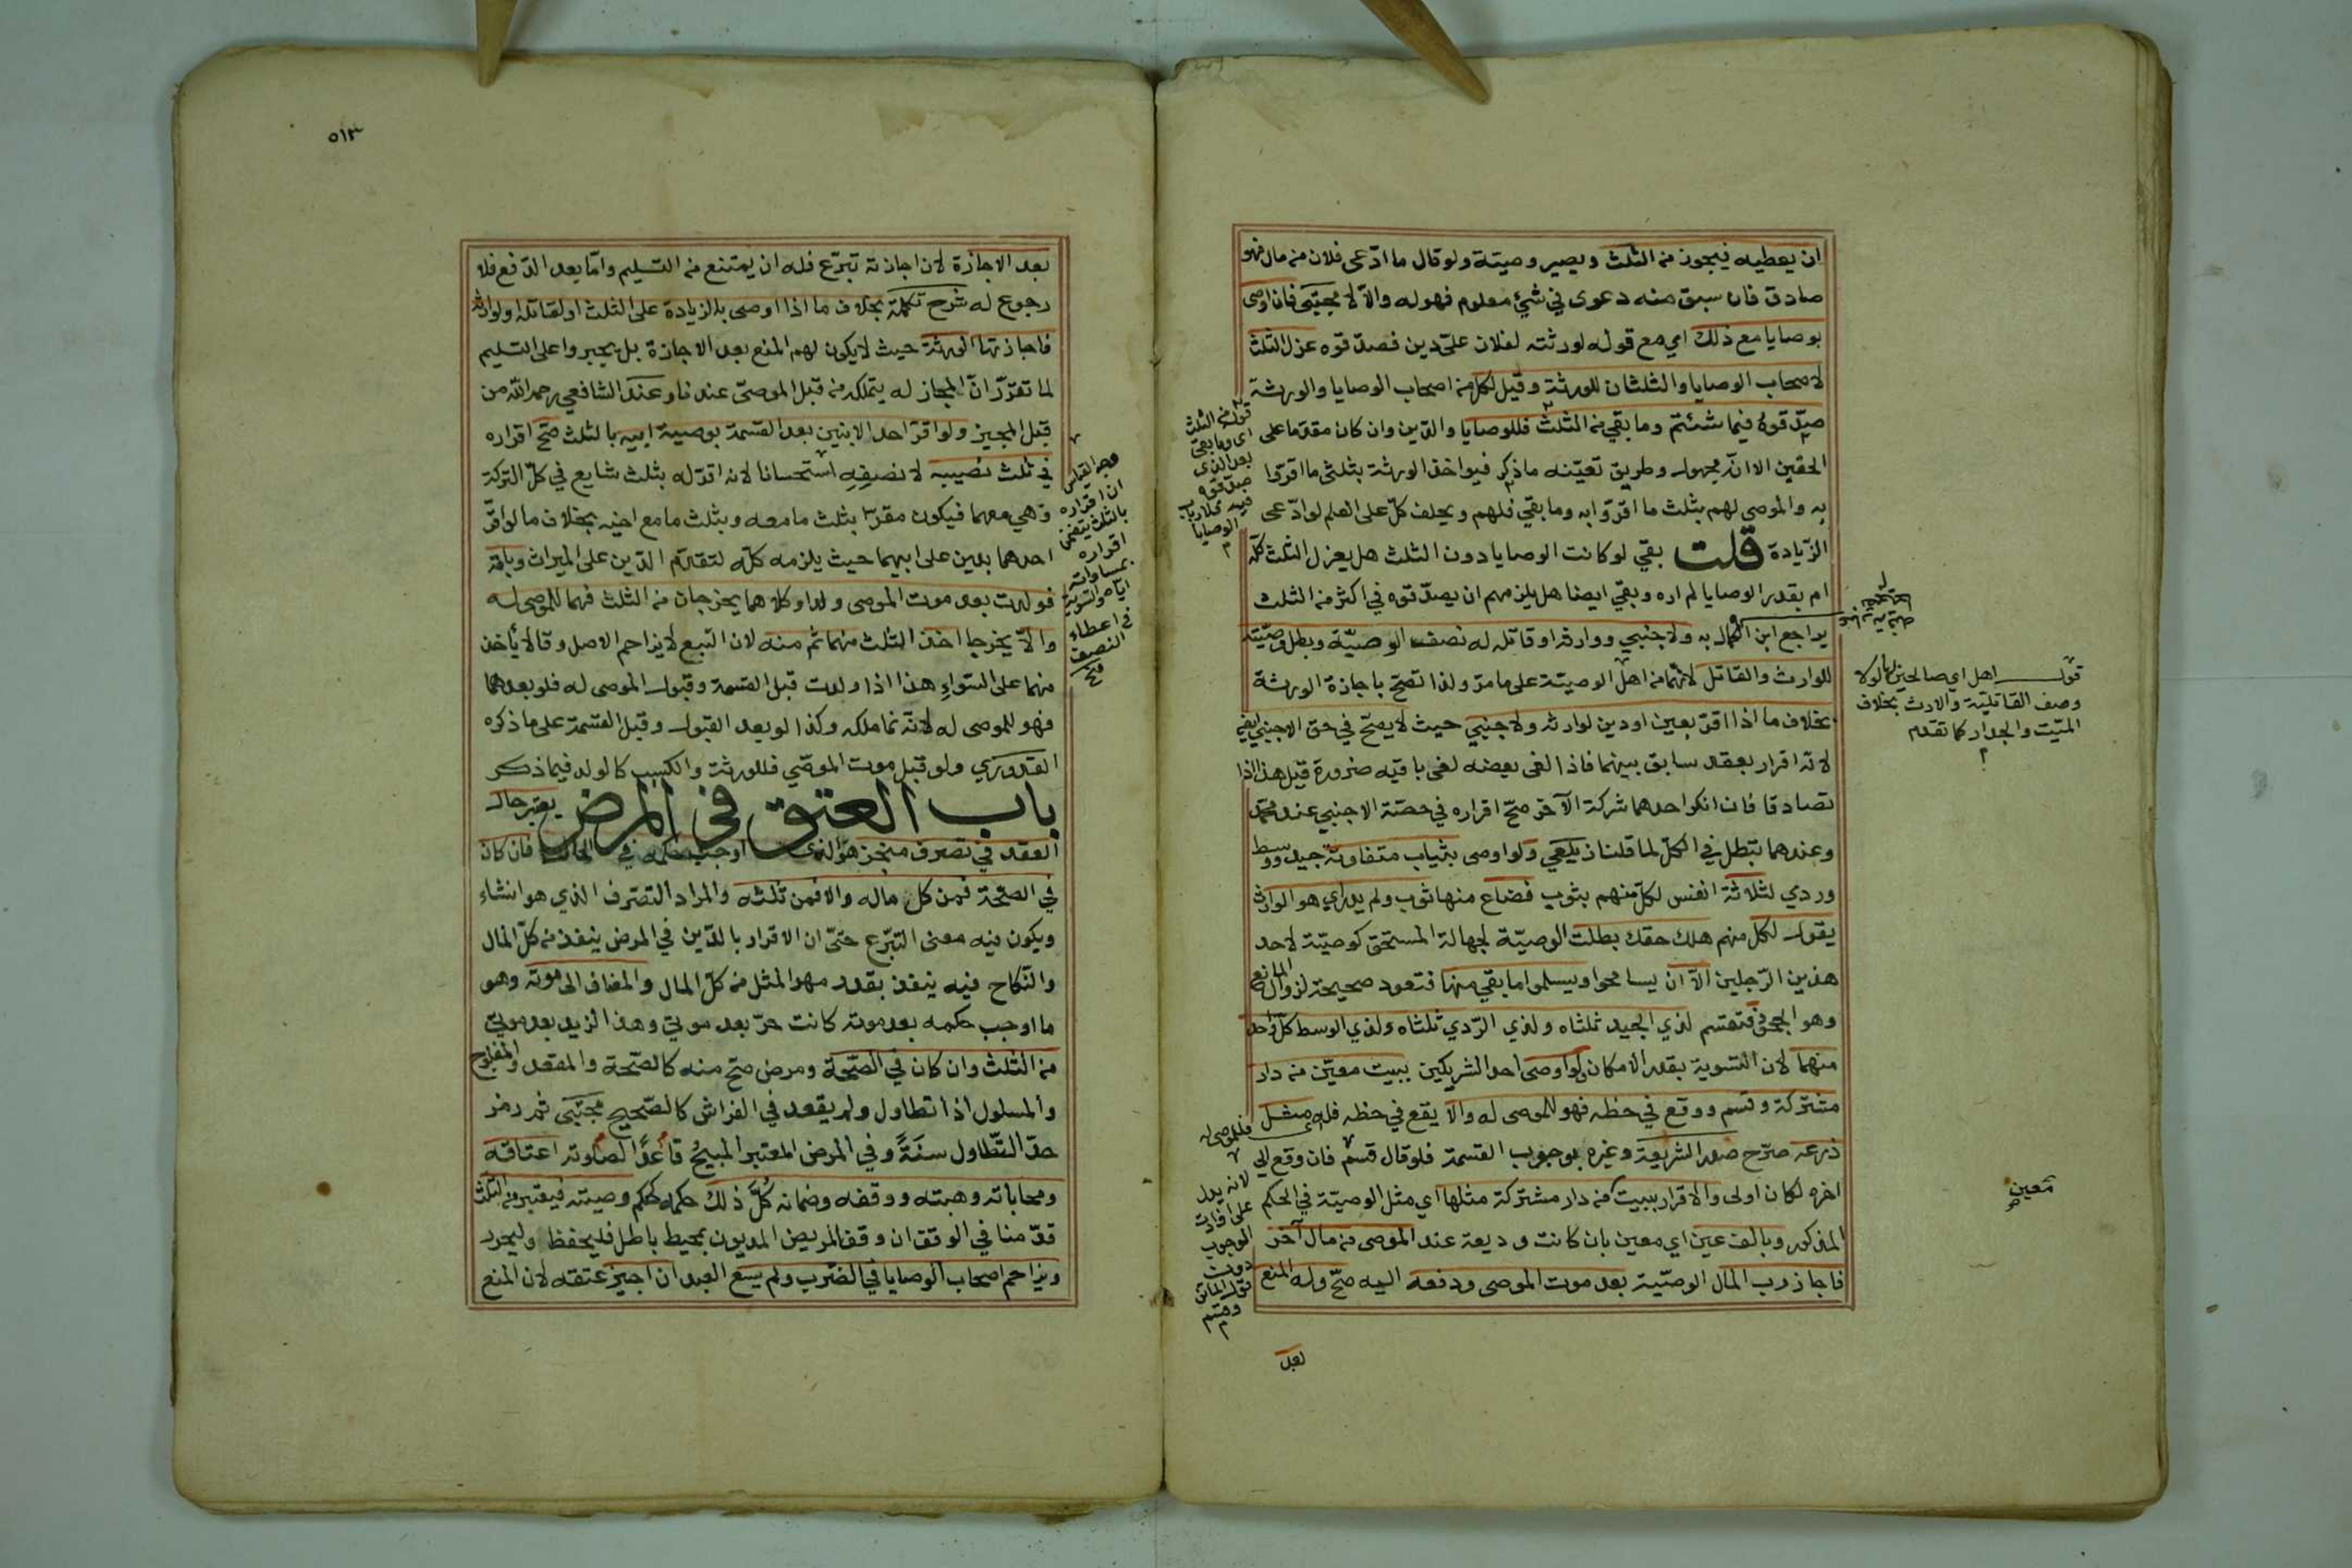 ان يعطيه فيجوز من الثلث ويصير وصية ولو قال ما ادعى فلان من مالي فهو
صادق فان سبق منه دعوى في شئ معلوم فهو له والا لا مجتبى فان اوصى
بوصايا مع ذلك اي مع قوله لورثته لفلان علي دين فصدقوه عزل الثلث
لاصحاب الوصايا والثلثان للورثة وقيل لكل من اصحاب الوصايا والورثة
صدقوه فيما شئتم وما بقي من الثلث فللوصايا والدين وان كان مقدما على
الحقين الا انه مجهول وطريق تعيينه ما ذكر فيواخذ الورثة بثلثي ما اقروا
به والموصى لهم بثلث ما اقروا به وما بقي فلهم ويحلف كل على العلم لو ادعى
الزيادة قلت بقي لو كانت الوصايا دون الثلث هل يعزل الثلث كله
ام بقدر الوصايا لم اره وبقي ايضا هل يلزمهم ان يصدقوه في اكثر من الثلث
يراجع ابن الكمال به ولاجنبي ووارثه او قاتله له نصف الوصية وبطل وصيته
للوارث والقاتل لانهما من اهل الوصية على ما مر ولذا تصح باجازة الورثة
بخلاف ما اذا اقر بعين او دين لوارثه ولاجنبي حيث لا يصح في حق الاجنبي ايضا
لانه اقرار بعقد سابق بينهما فاذا لغى بعضه لغى باقيه ضرورة قيل هذا اذا
تصادقا فان انكر احدهما شركة الآخر صح اقراره في حصة الاجنبي عند محمد
وعندهما تبطل في الكل لما قلنا زيلعي ولو اوصى بثياب متفاوتة جيد ووسط
وردي لثلاثة انفس لكل منهم بثوب فضاع منها ثوب ولم يدر اي هو والوارث
يقول لكل منهم هلك حقك بطلت الوصية لجهالة المستحق كوصية لاحد
هذين الرجلين الا ان يسامحوا ويسلموا ما بقي منها فتعود صحيحة لزوال المانع
وهو الجحود فتقسم لذي الجيد ثلثاه ولذي الردي ثلثاه ولذي الوسط كل واحد
منهما لان التسوية بقدر الامكان ولو اوصى احد الشريكين ببيت معين من دار
مشتركة وقسم ووقع في حظه فهو للموصى له والا يقع في حظه فله مثل
ذرعه صرح صدر الشريعة وغيره بوجوب القسمة فلو قال قسم فان وقع الى
اخره لكان اولى والاقرار ببيت من دار مشتركة مثلها اي مثل الوصية في الحكم
المذكور وبالف عين اي معين بان كانت وديعة عند الموصى من مال آخر
فاجاز رب المال الوصية بعد موت الموصى ودفعه اليه صح وله المنع
بعد
قوله من الثلث
اي وما بقي
بعد الذي
صدقوه
فيه فلارباب
الوصايا
قوله اهل اي صالحين لها لولا
وصف القاتلية والارث بخلاف
الميت والجدار كما تقدم
معين
صح
فللموصى له
لانه يدل
على افادة
الوجوب
دون
قول الماتن
وقسم
٥١٣
بعد الاجازة لان اجازته تبرع فله ان يمتنع من التسليم واما بعد الدفع فلا
رجوع له شرح تكملة بخلاف ما اذا اوصى بالزيادة على الثلث او لقاتله او لوارثه
فاجازتها الورثة حيث لا يكون لهم المنع بعد الاجازة بل يجبروا على التسليم
لما تقرر ان المجاز له يتملكه من قبل الموصي عندنا وعند الشافعي رحمه الله من
قبل المجيز ولو اقر احد الابنين بعد القسمة بوصية ابيه بالثلث صح اقراره
في ثلث نصيبه لا نصفه استحسانا لانه اقر له بثلث شايع في كل التركة
وهي معهما فيكون مقرا بثلث ما معه وبثلث ما مع اخيه بخلاف ما لو اقر
احدهما بدين على ابيهما حيث يلزمه كله لتقدم الدين على الميراث وبامة
فولدت بعد موت الموصى ولدا وكلاهما يخرجان من الثلث فهما للموصى له
والا يخرجا اخذ الثلث منهما ثم منه لان التبع لا يزاحم الاصل وقالا يأخذ
منهما على السواء هذا اذا ولدت قبل القسمة وقبول الموصى له فلو بعدهما
فهو للموصى له لانه نما ملكه وكذا لو بعد القبول وقبل القسمة على ما ذكره
القدوري ولو قبل موت الموصي فللورثة والكسب كالولد فيما ذكر
باب العتق في المرض يعتبر حال
العقد في تصرف منجز هو الذي اوجب حكمه في الحال فان كان
في الصحة فمن كل ماله والا فمن ثلثه والمراد التصرف الذي هو انشاء
ويكون فيه معنى التبرع حتى ان الاقرار بالدين في المرض ينفذ من كل المال
والنكاح فيه ينفذ بقدر مهر المثل من كل المال والمضاف الى موته وهو
ما اوجب حكمه بعد موته كانت حر بعد موتي وهذا لزيد بعد موتي
من الثلث وان كان في الصحة ومرض صح منه كالصحة والمقعد والمفلوج
والمسلول اذا تطاول ولم يقعد في الفراش كالصحيح مجتبى ثم رمز
حد التطاول سنة وفي المرض المعتبر المبيح قاعدا لصلوته اعتاقه
ومحاباته وهبته ووقفه وضمانه كل ذلك حكمه كحكم وصيته فيعتبر من الثلث
قدمنا في الوقف ان وقف المريض المديون بمحيط باطل فليحفظ وليحرر
ويزاحم اصحاب الوصايا في الضرب ولم يسع العبد ان اجيز عتقه لان المنع
وجه القياس
ان اقراره
بالثلث يتضمن
اقراره
بمساواته
اياه والتسوية
في اعطاء
النصف